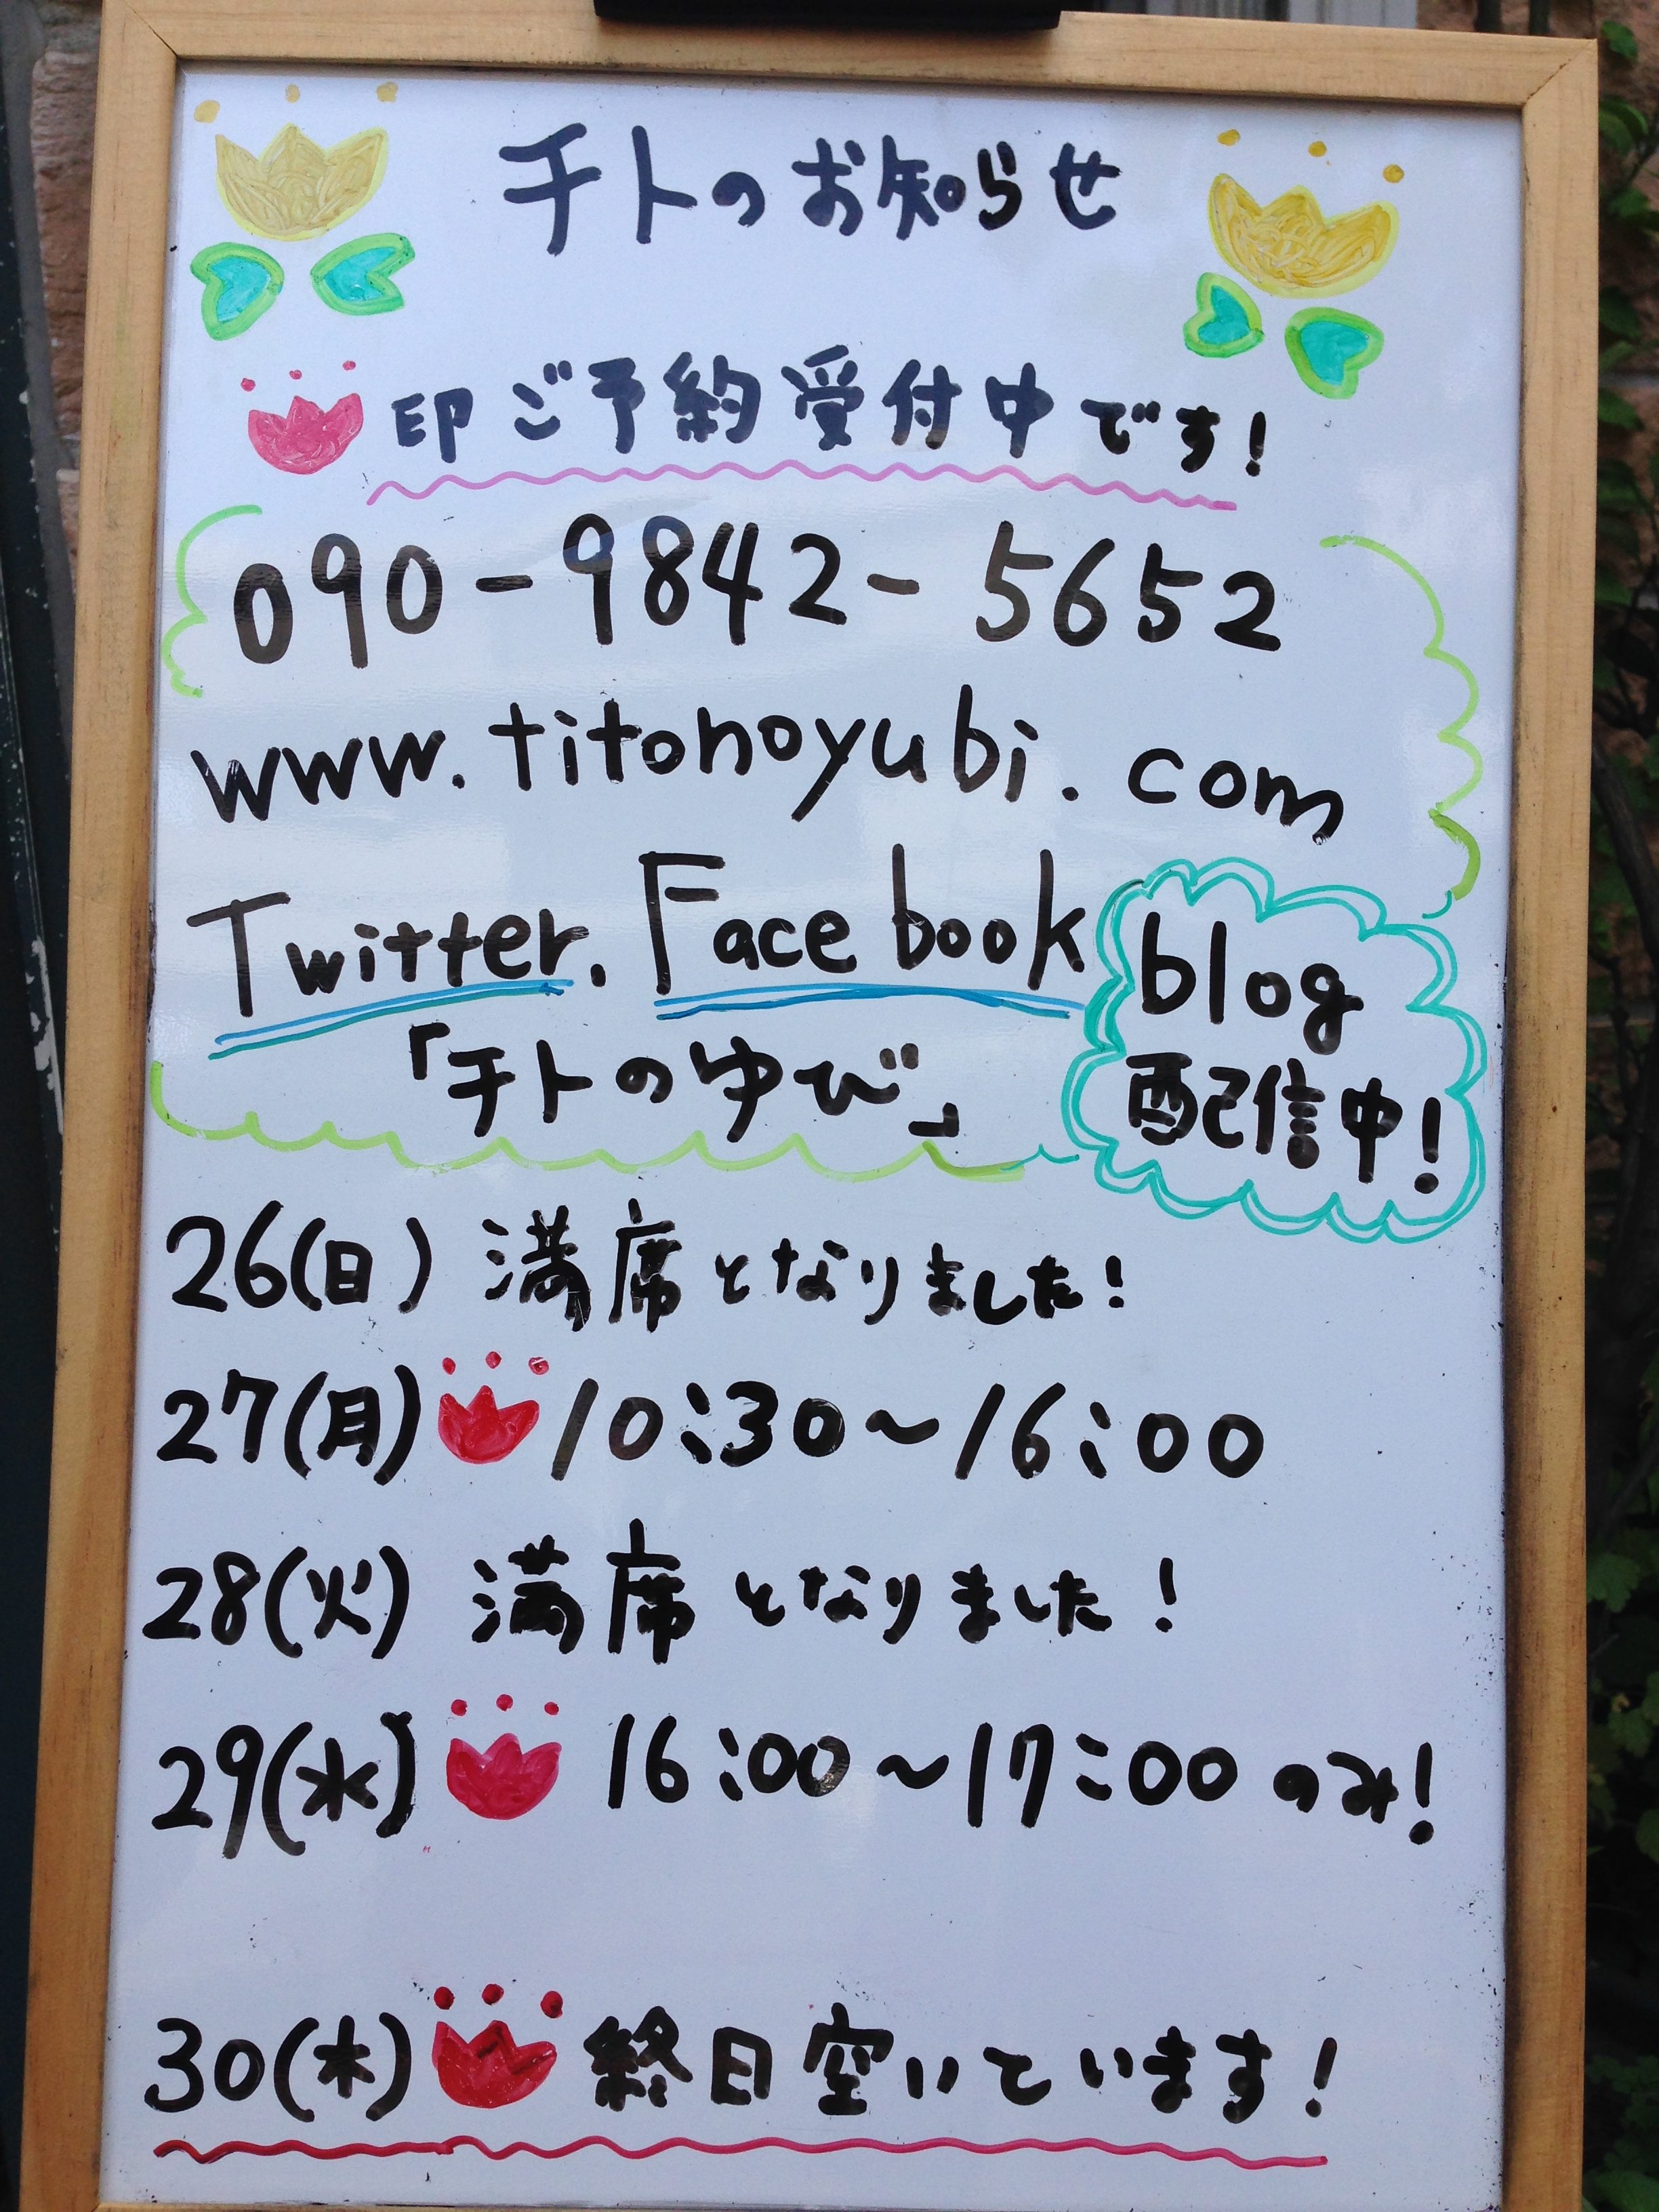 チトのお知らせ
印ご予約受付中です!
090-9842-5652
www.titonoyubi.com
Twitter. Facebook
「チトのゆび」
blog
配信中!
26(日) 満席となりました!
27(月) 10:30~16:00
28(火) 満席となりました!
29(水) 16:00~17:00のみ!
30(木) 終日空いています!